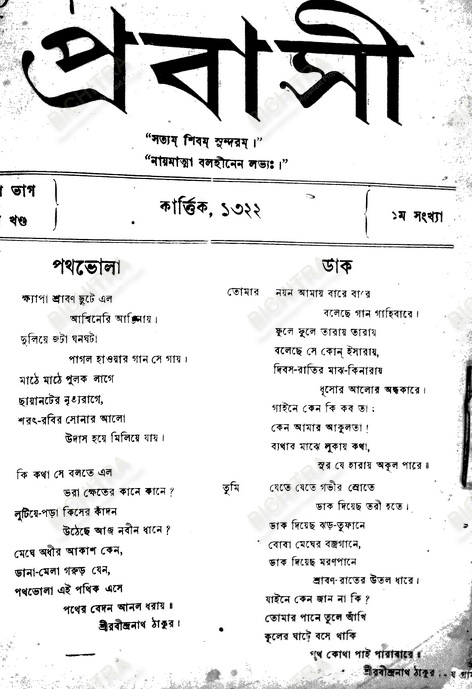 প্রবাসী
“সত্যম্ শিবম্ সুন্দরম্।”
“নায়মাত্মা বলহীনেন লভ্যঃ।”
ভাগ
খণ্ড
কার্ত্তিক, ১৩২২
১ম সংখ্যা
পথভোলা
ক্ষ্যাপা শ্রাবণ ছুটে এল
আশ্বিনেরি আঙিনায়।
দুলিয়ে জটা ঘনঘটা
পাগল হাওয়ার গান সে গায়।
মাঠে মাঠে পুলক লাগে
ছায়ানটের নৃত্যরাগে,
শরৎ-রবির সোনার আলো
উদাস হয়ে মিলিয়ে যায়।
কি কথা সে বলতে এল
ভরা ক্ষেতের কানে কানে?
লুটিয়ে-পড়া কিসের কাঁদন
উঠেছে আজ নবীন ধানে?
মেঘে অধীর আকাশ কেন,
ডানা-মেলা গরুড় যেন,
পথভোলা এই পথিক এসে
পথের বেদন আনল ধরায়॥
শ্রীরবীন্দ্রনাথ ঠাকুর।
ডাক
তোমার নয়ন আমায় বারে বারে
বলেছে গান গাহিবারে।
ফুলে ফুলে তারায় তারায়
বলেছে সে কোন্ ইসারায়,
দিবস-রাতির মাঝ-কিনারায়
ধূসোর আলোর অন্ধকারে।
গাইনে কেন কি কব তা;
কেন আমার আকুলতা!
ব্যথার মাঝে লুকায় কথা,
সুর যে হারায় অকূল পারে॥
তুমি যেতে যেতে গভীর স্রোতে
ডাক দিয়েছ তরী হতে।
ডাক দিয়েছ ঝড়-তুফানে
বোবা মেঘের বজ্রগানে,
ডাক দিয়েছ মরণপানে
শ্রাবণ-রাতের উতল ধারে।
যাইনে কেন জান না কি?
তোমার পানে তুলে আঁখি
কূলের ঘাটে বসে থাকি
পথ কোথা পাই পারাবারে॥
শ্রীরবীন্দ্রনাথ ঠাকুর